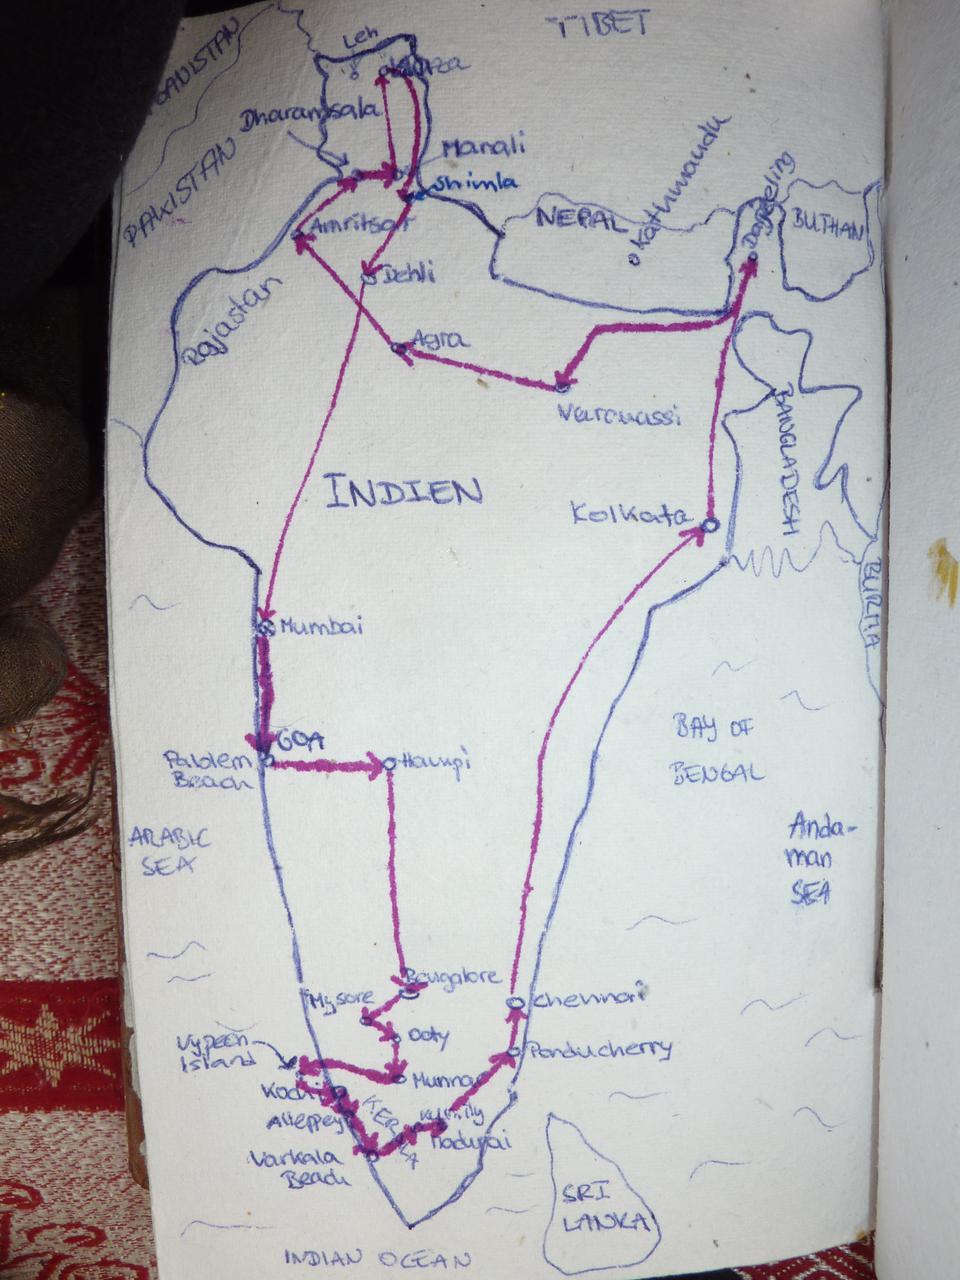 TIBET
Leh
Dharamsala
PAKISTAN
Manali
Shimla
Kathmandu
NEPAL
BUTHAN
Amritsar
Dehli
Rajastan
Agra
INDIEN
BANGLADESH
Kolkata
BURMA
Mumbai
GOA
Beach
Hampi
BAY OF
BENGAL
ARABIC
SEA
Anda-
man
SEA
Bangalore
Mysore
Chennai
Ooty
Vypeen
Island
Ponducherry
Munnar
Kochi
Alleppey
Madurai
Varkala
Beach
SRI
LANKA
INDIAN OCEAN